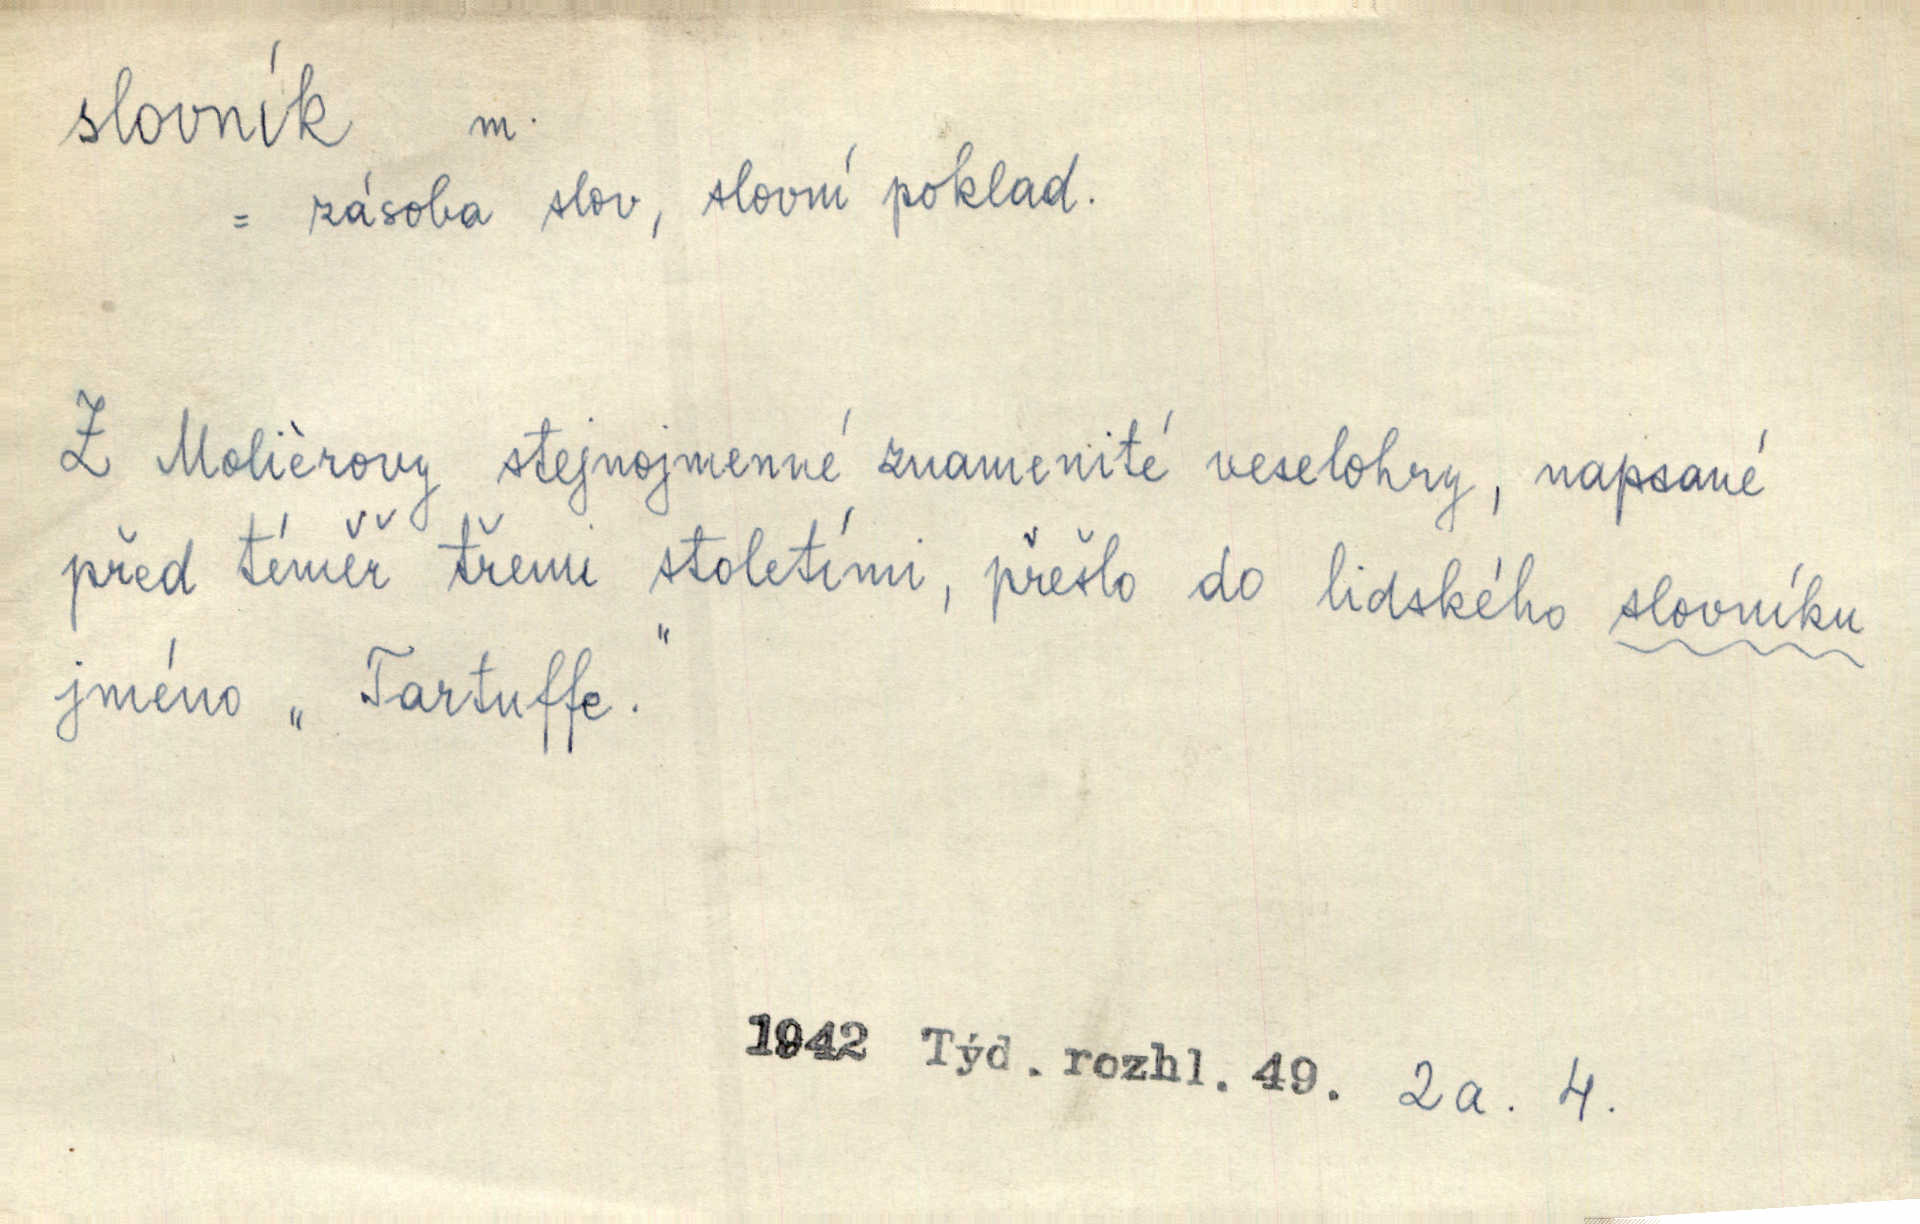 slovník m.
= zásoba slov, slovní poklad.
Z Molièrovy stejnojmenné znamenité veselohry, napsané
před téměř třemi stoletími, přešlo do lidského slovníku
jméno „Tartuffe."
1942 Týd. rozhl. 49. 2a. 4.